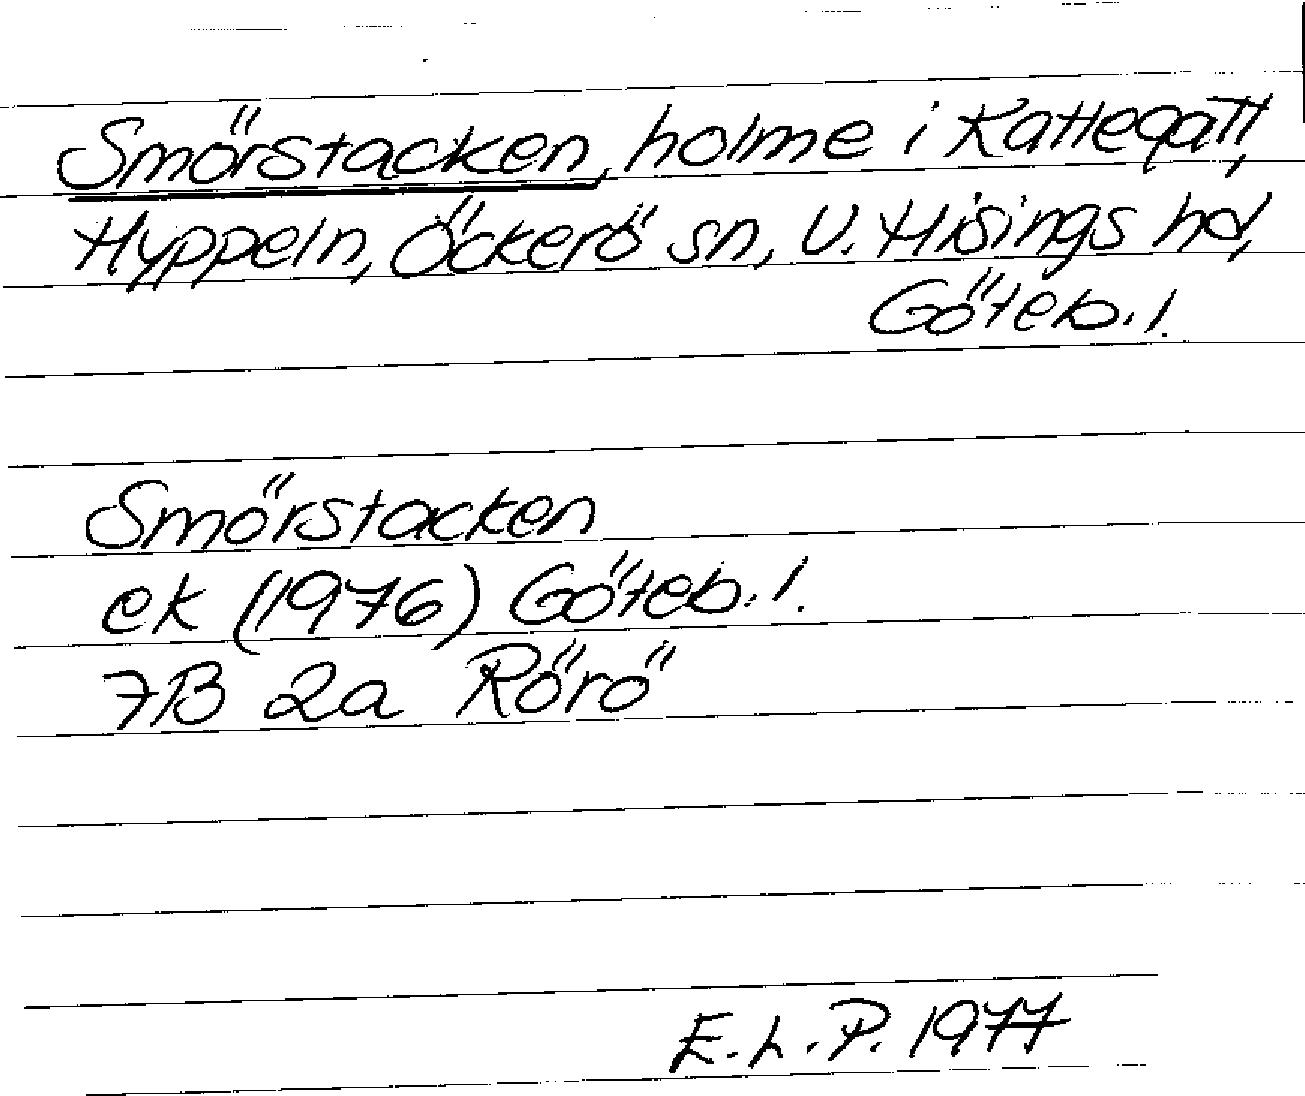 Smörstacken, holme i Kattegatt,
Hyppeln, Öckerö sn, V. Hisings hd,
Göteb. l.
Smörstacken
ek (1976) Göteb. l.
7B 2a Rörö
E. L. P. 1977